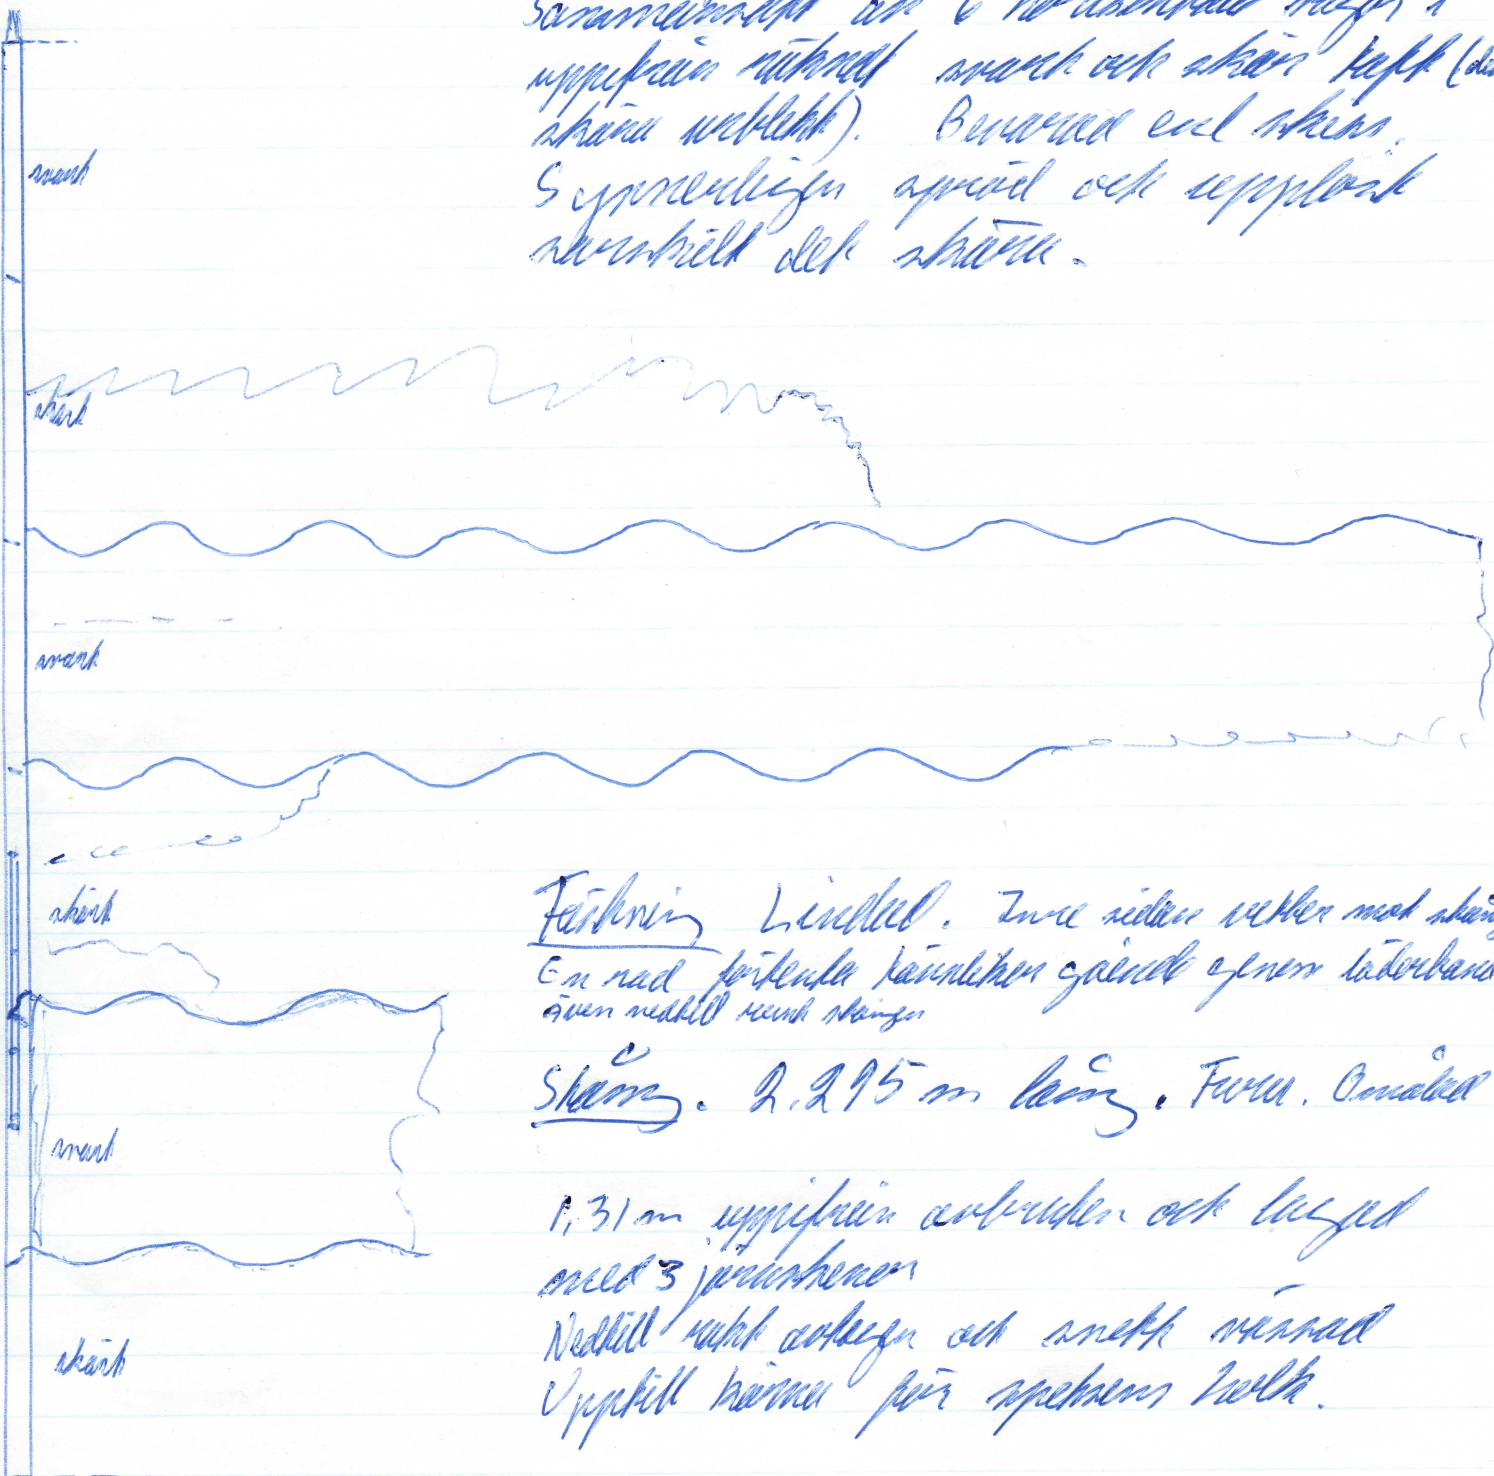 Sammansatt av 6 horisontala
uppifrån räknat svart och skär taft
skära urblekt). Bevarad
Synnerligen spröd och upplöst
särskilt det skära.
svart
skärt
svart
skärt
Fästning Lindad. Inre sidan vetter mot stång
En rad förtenta gående genom läderband
även nedtill runt stången
Stång. 2,295 m lång. Furu. Omålad
svart
1,31 m uppifrån avbruten och lagad
med 3 järnskenor
Nedtill rakt avtagen och snett vässad
skärt
Upptill för spetsens holk.